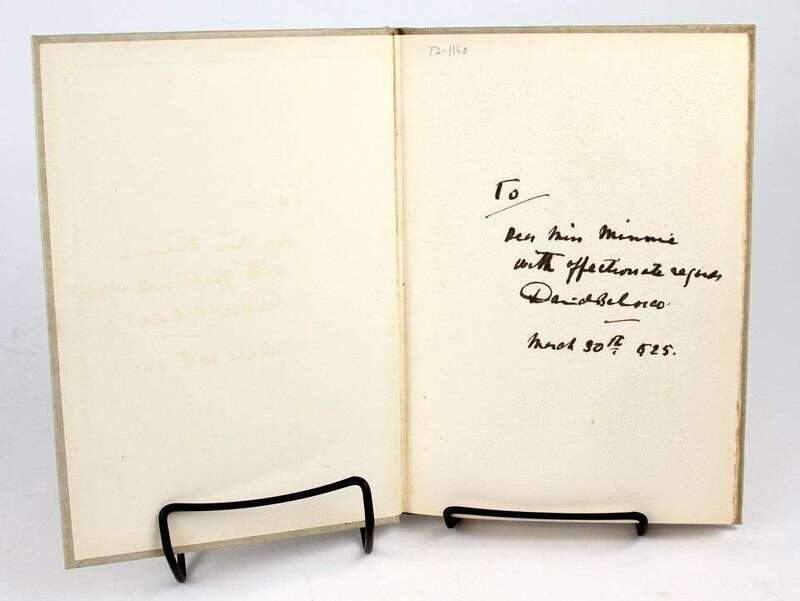 To
Dear Miss Minnie
with affectionate regards
David Belasco
March 30th 1925.